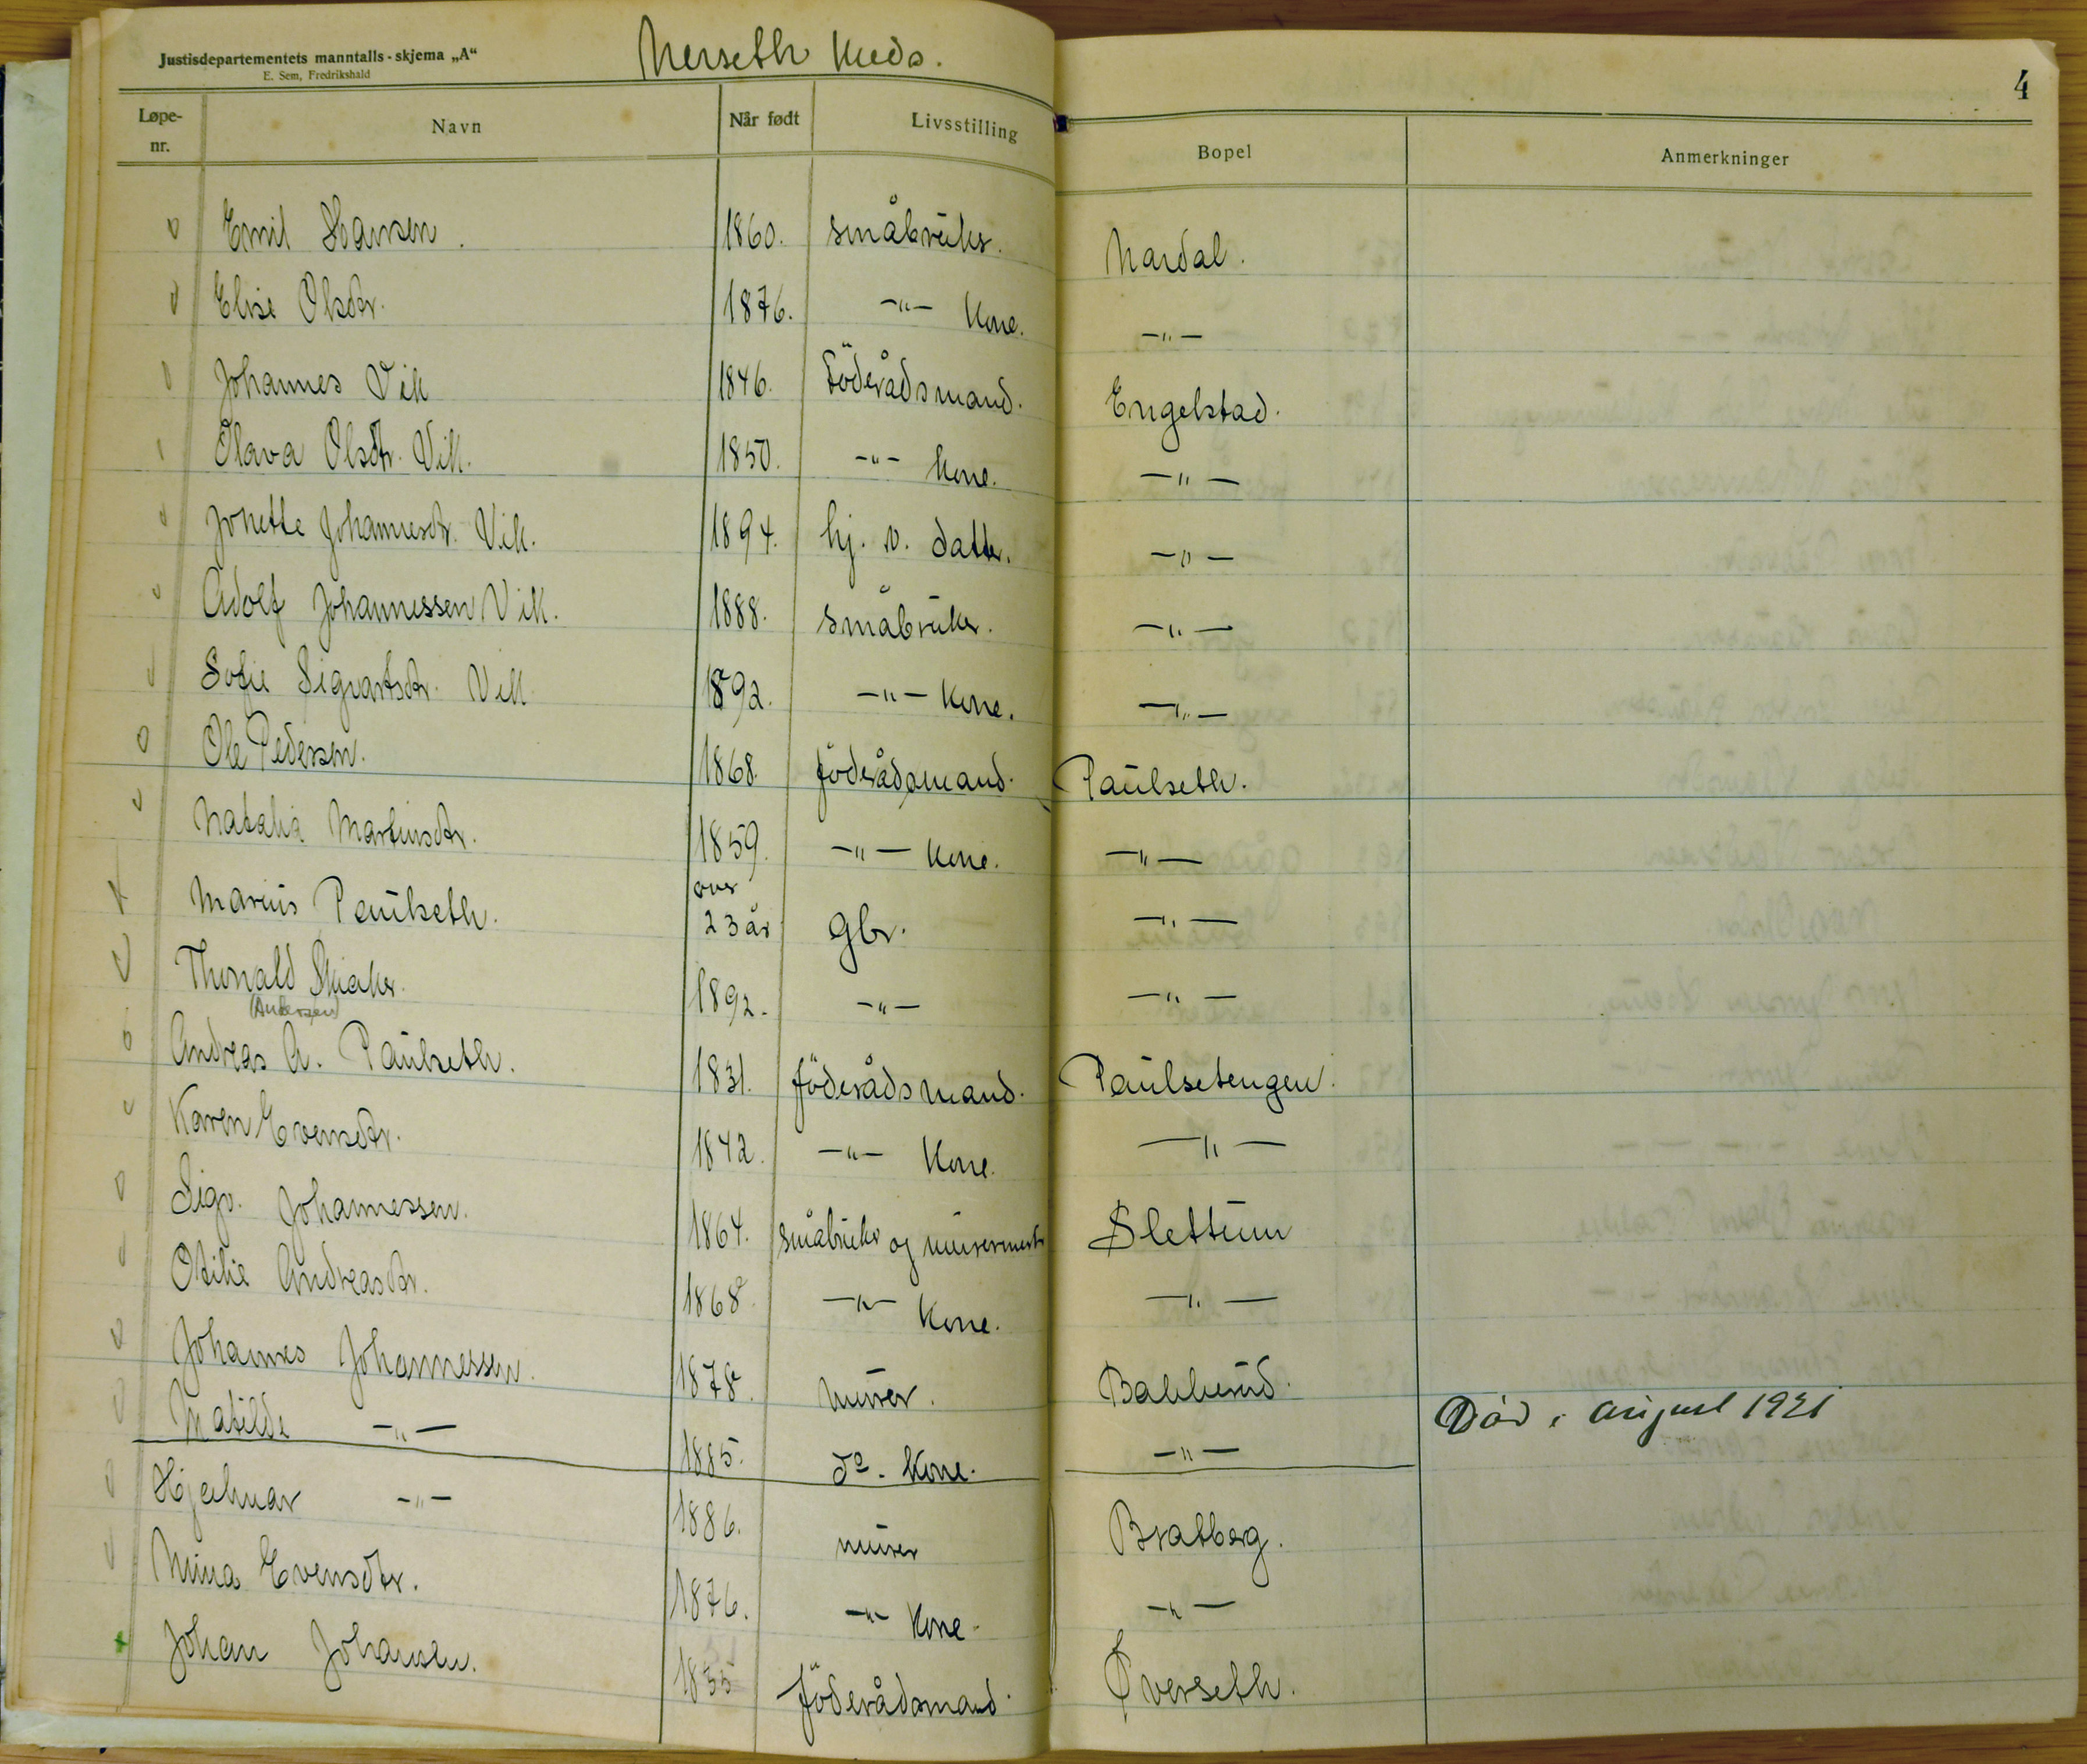 Justisdepartementets manntalls-skjema „A“
E. Sem, Fredrikshald
Nerseth Kreds.
4
Løpe-nr. Navn Når født Livsstilling Bopel Anmerkninger
Emil Hansen. 1860. småbruker. Nardal.
Elise Olsdtr. 1876. -"- Kone. -"-
Johannes Vik 1846. Föderådsmand. Engelstad.
Olava Olsdtr. Vik. 1850. -"- Kone. -"-
Jonette Johannesdtr. Vik. 1894. hj. v. datter. -"-
Adolf Johannessen Vik. 1888. småbruker. -"-
Sofie Sigvartsdtr. Vik 1892. -"- Kone. -"-
Ole Pedersen. 1868. föderådsmand. Paulseth.
Natalia Martinsdtr. 1859. -"- Kone. -"-
Marius Paulseth. over 23 år gbr. -"-
Thorvald Skiaker. 1892. -"- -"-
(Andersen)
Andreas A. Paulseth. 1831. föderådsmand. Paulsetengen.
Karen Evensdtr. 1842. -"- Kone. -"-
Sigv. Johannessen. 1864. småbruker og murermester Slettum
Otilie Andreasdtr. 1868. -"- Kone. -"-
Johannes Johannessen. 1878. murer. Bakkerud.
Matilde -"- 1885. do. Kone. -"- Död i august 1921
Hjalmar -"- 1886. murer Bratberg.
Mina Evensdtr. 1876. -"- Kone -"-
Johan Johansen. 1835 föderådsmand. Øverseth.